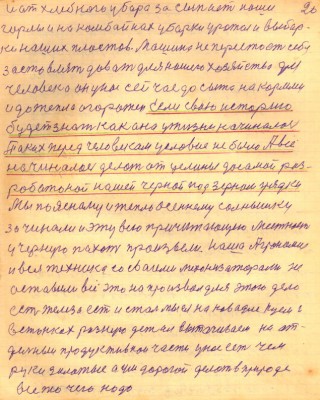 и от хлебного убора засыпают наши 20
горы и на комбайнах уборки урожая и выбор-
ки наших пластов. Машино не перестоет себя
заставлят доват для нашего хозяйство для
человека он уже сей час до сыто накормим
и до тепло огорожен если свою историю
будет знат как она у жизне начиналос
Таких перед человекам условие не было А все
начиналос делат от целины до самой раз-
роботоной нашей черной под зерном грядки
Мы по ясному и тепло осеннему солнышку
зачинали и эту всю причитающую местност
и черную пахот произвели. наша
и вся техника со своими механизаторами не
оставили всё это на произвол для этого дело
сет, тялза сет и стал мысл на ковадле куем з
разную детал вытягиваем на от-
делным продуктивной части у нос сет чем
руки золотые а чим дорогой делат в природе
все же чего надо